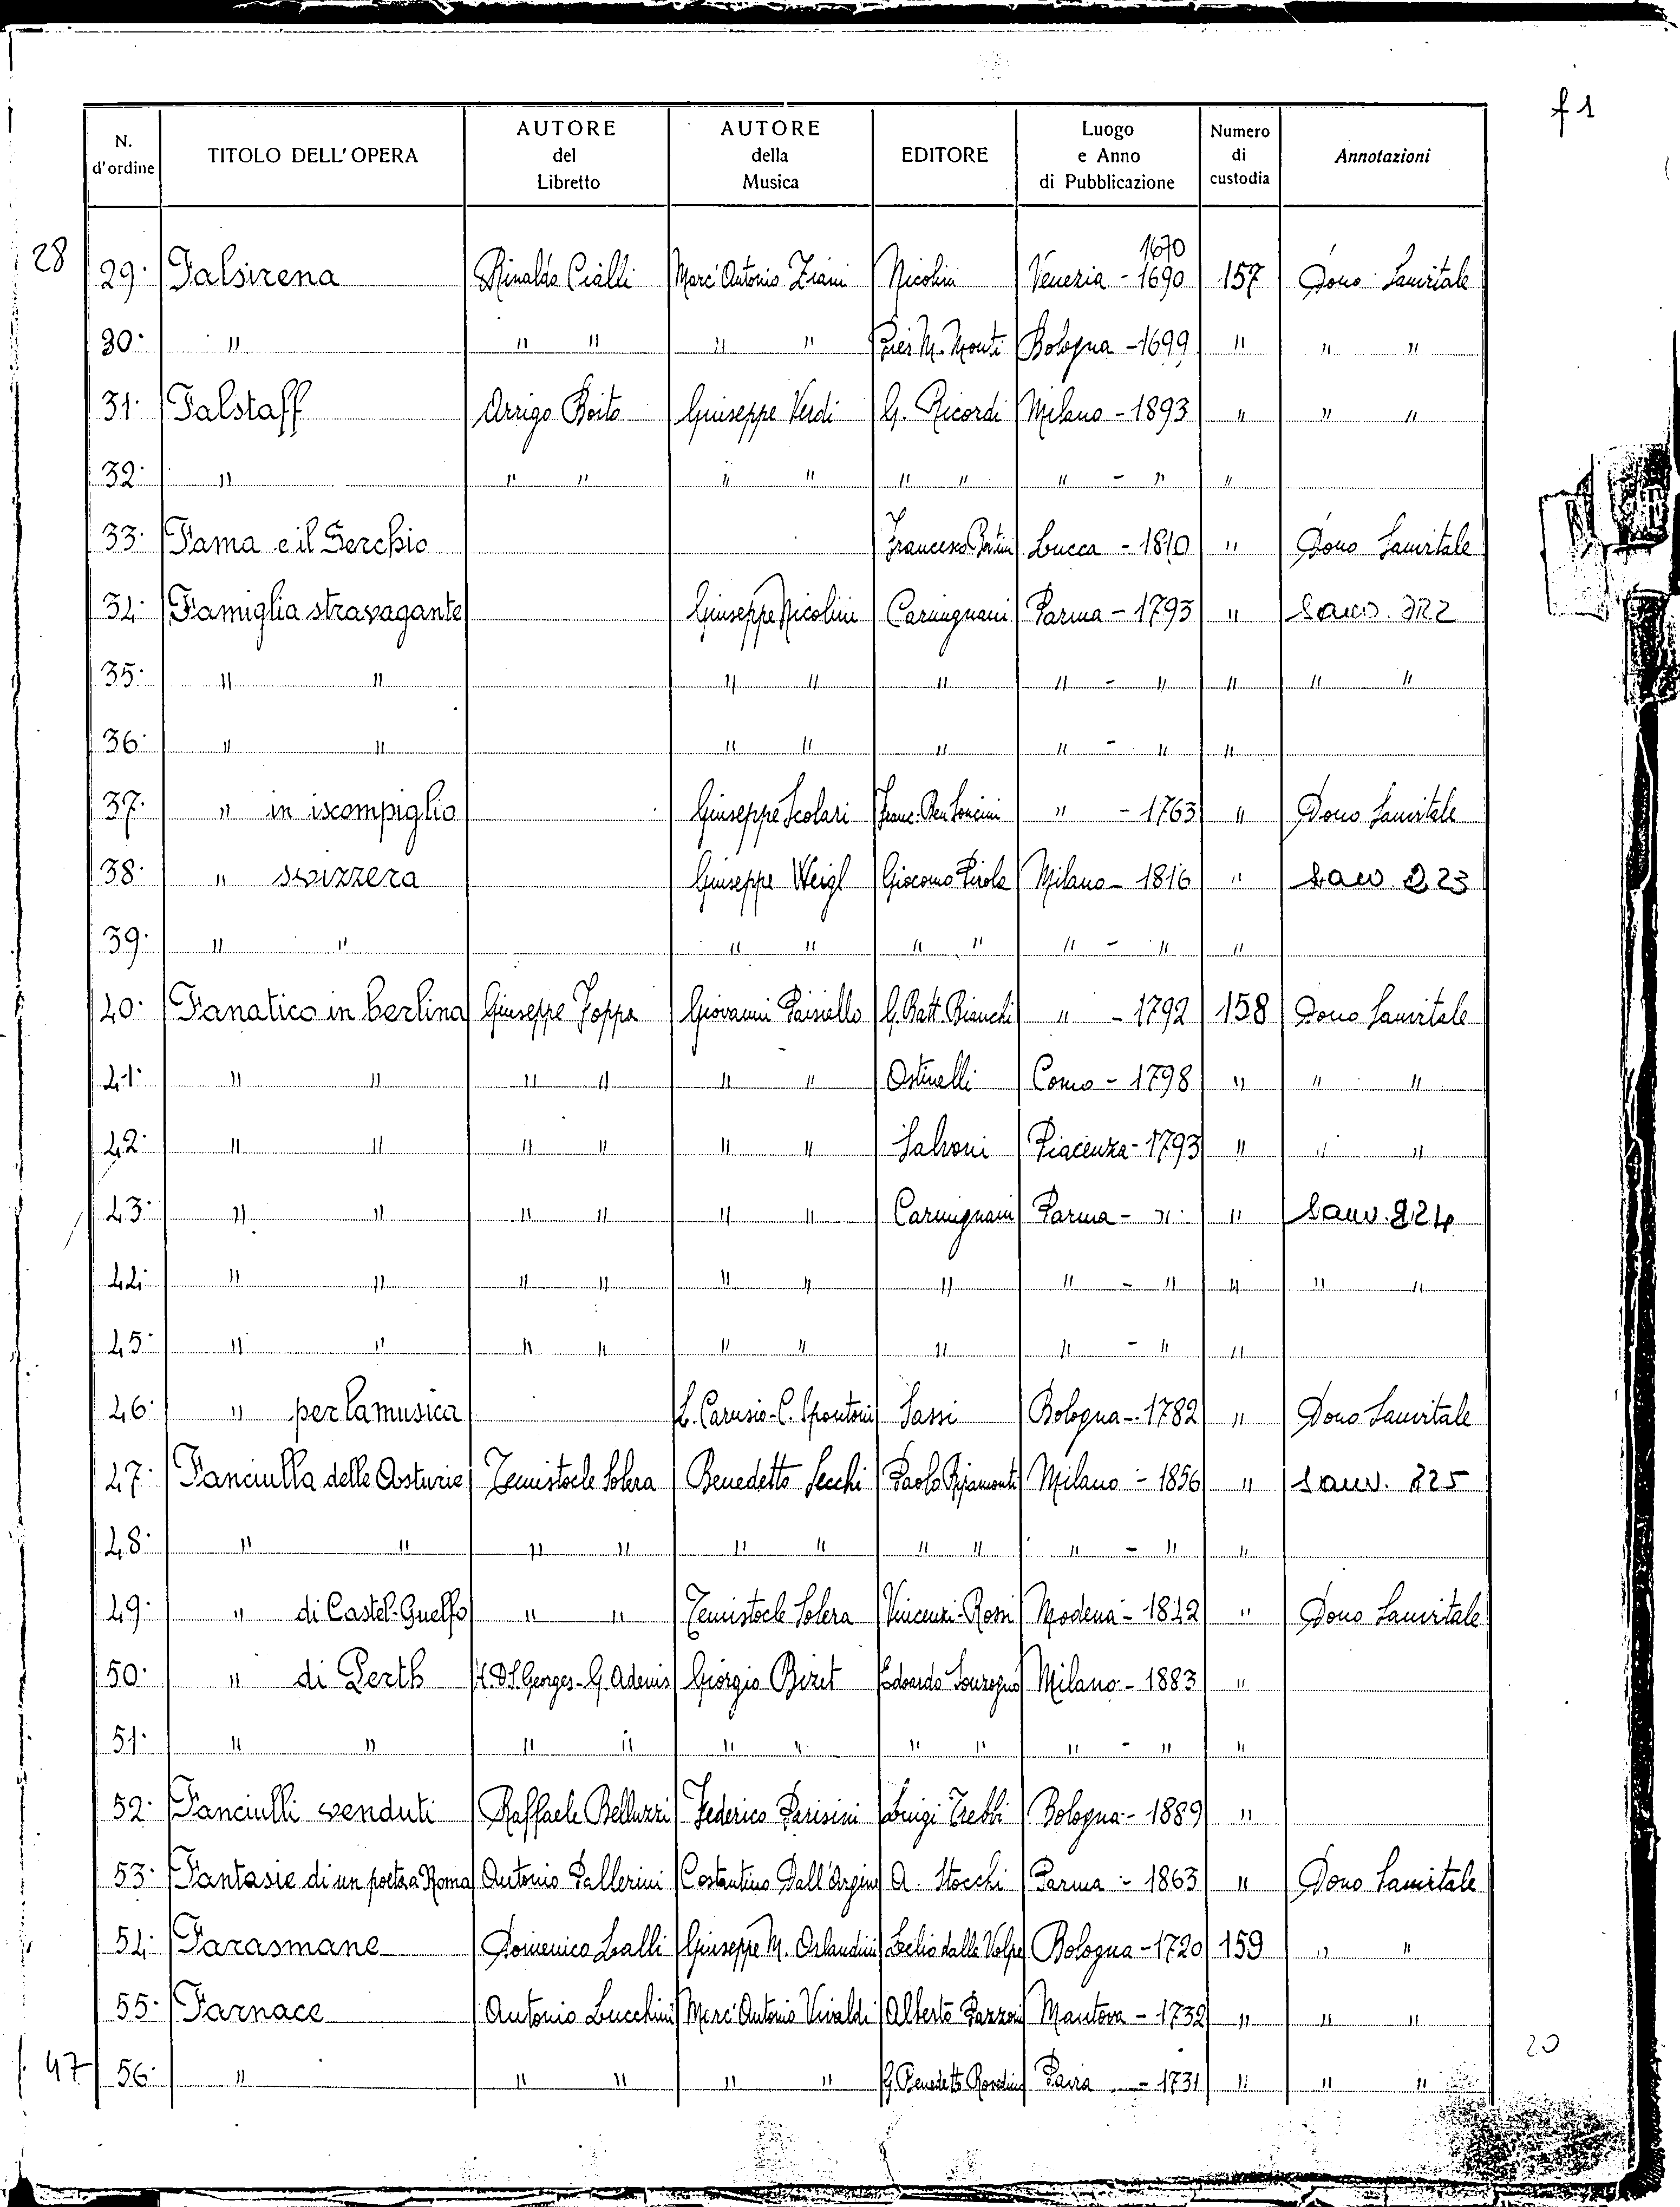 f 1
N. d'ordine | TITOLO DELL'OPERA | AUTORE del Libretto | AUTORE della Musica | EDITORE | Luogo e Anno di Pubblicazione | Numero di custodia | Annotazioni
28
1670
29. | Falsirena | Rinaldo Cialli | Marc'Antonio Ziani | Nicolini | Venezia - 1690 | 157 | Dono Sanvitale
30. | " | " " | " " | Pier M. Monti | Bologna - 1699 | " | " "
31. | Falstaff | Arrigo Boito | Giuseppe Verdi | G. Ricordi | Milano - 1893 | " | " "
32. | " | " " | " " | " " | " - " | " |
33. | Fama e il Serchio | | | Francesco Bertini | Lucca - 1810 | " | Dono Sanvitale
34. | Famiglia stravagante | | Giuseppe Nicolini | Carmignani | Parma - 1793 | " |
35. | " " | | " " | " | " - " | " | " "
36. | " " | | " " | " | " - " | " |
37. | " in iscompiglio | | Giuseppe Scolari | Franc. Ben Soncini | " - 1763 | " | Dono Sanvitale
38. | " svizzera | | Giuseppe Weigl | Giacomo Pirola | Milano - 1816 | " |
39. | " " | | " " | " " | " - " | " |
40. | Fanatico in berlina | Giuseppe Foppa | Giovanni Paisiello | G. Batt. Bianchi | " - 1792 | 158 | Dono Sanvitale
41. | " " | " " | " " | Ostinelli | Como - 1798 | " | " "
42. | " " | " " | " " | Salvoni | Piacenza - 1793 | " | " "
43. | " " | " " | " " | Carmignani | Parma - " | " | Sanv. 224
44. | " " | " " | " " | " | " - " | " | " "
45. | " " | " " | " " | " | " - " | " |
46. | " per la musica | | L. Carusio - C. Spontoni | Sassi | Bologna - 1782 | " | Dono Sanvitale
47. | Fanciulla delle Asturie | Temistocle Solera | Benedetto Secchi | Paolo Ripamonti | Milano - 1856 | " | Sanv. 225
48. | " " | " " | " " | " " | " - " | " |
49. | " di Castel-Guelfo | " " | Temistocle Solera | Vincenzi-Rossi | Modena - 1842 | " | Dono Sanvitale
50. | " di Perth | H. D S. Georges - G. Adenis | Giorgio Bizet | Edoardo Sonzogno | Milano - 1883 | " |
51. | " " | " " | " " | " " | " - " | " |
52. | Fanciulli venduti | Raffaele Belluzzi | Federico Parisini | Luigi Trebbi | Bologna - 1889 | " |
53. | Fantasie di un poeta a Roma | Antonio Pallerini | Costantino Dall'Argine | A. Stocchi | Parma - 1863 | " | Dono Sanvitale
54. | Farasmane | Domenico Lalli | Giuseppe M. Orlandini | Lelio dalla Volpe | Bologna - 1720 | 159 | " "
55. | Farnace | Antonio Lucchini | Marc'Antonio Vivaldi | Alberto Pazzoni | Mantova - 1732 | " | " "
20
47
56. | " | " " | " " | G. Benedetto | Pavia - 1731 | " | " "